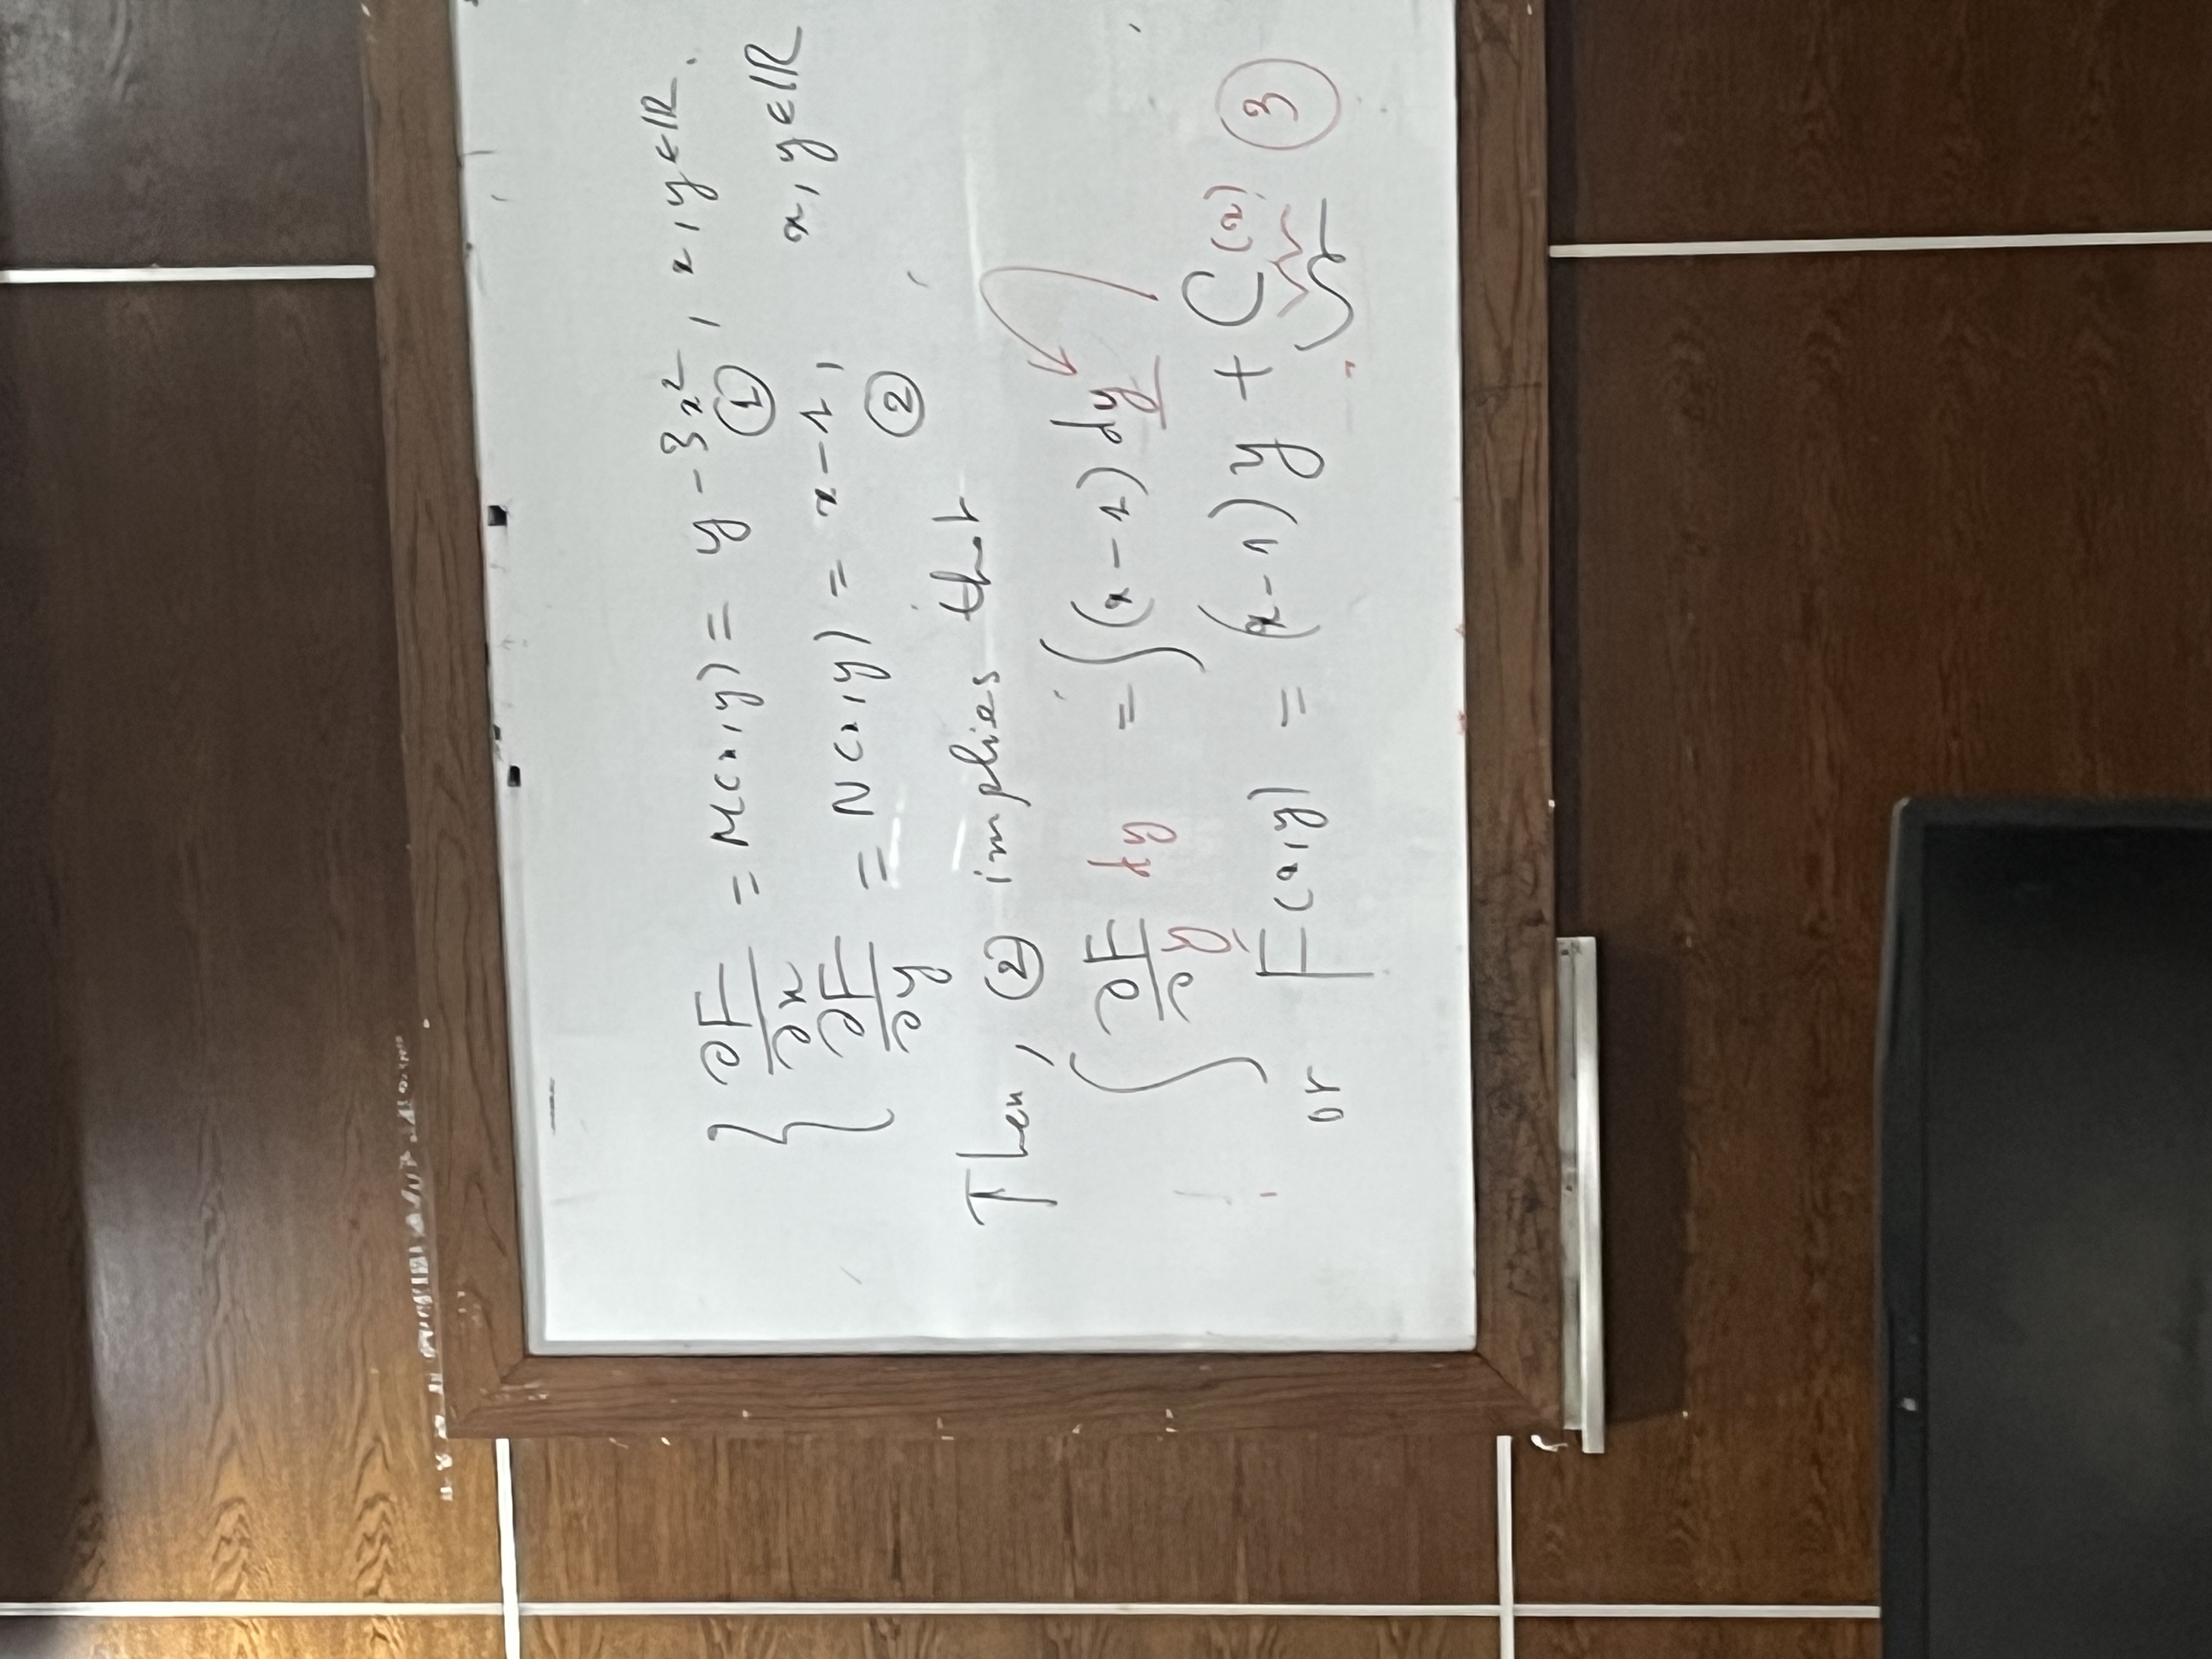 ∂F/∂x = M(x,y) = y - 3x², x,y ∈ ℝ.
①
∂F/∂y = N(x,y) = x - 1, x,y ∈ ℝ
②
Then, ② implies that
∫ ∂F/∂y dy = ∫(x - 1) dy
or F(x,y) = (x - 1) y + C(x) ③